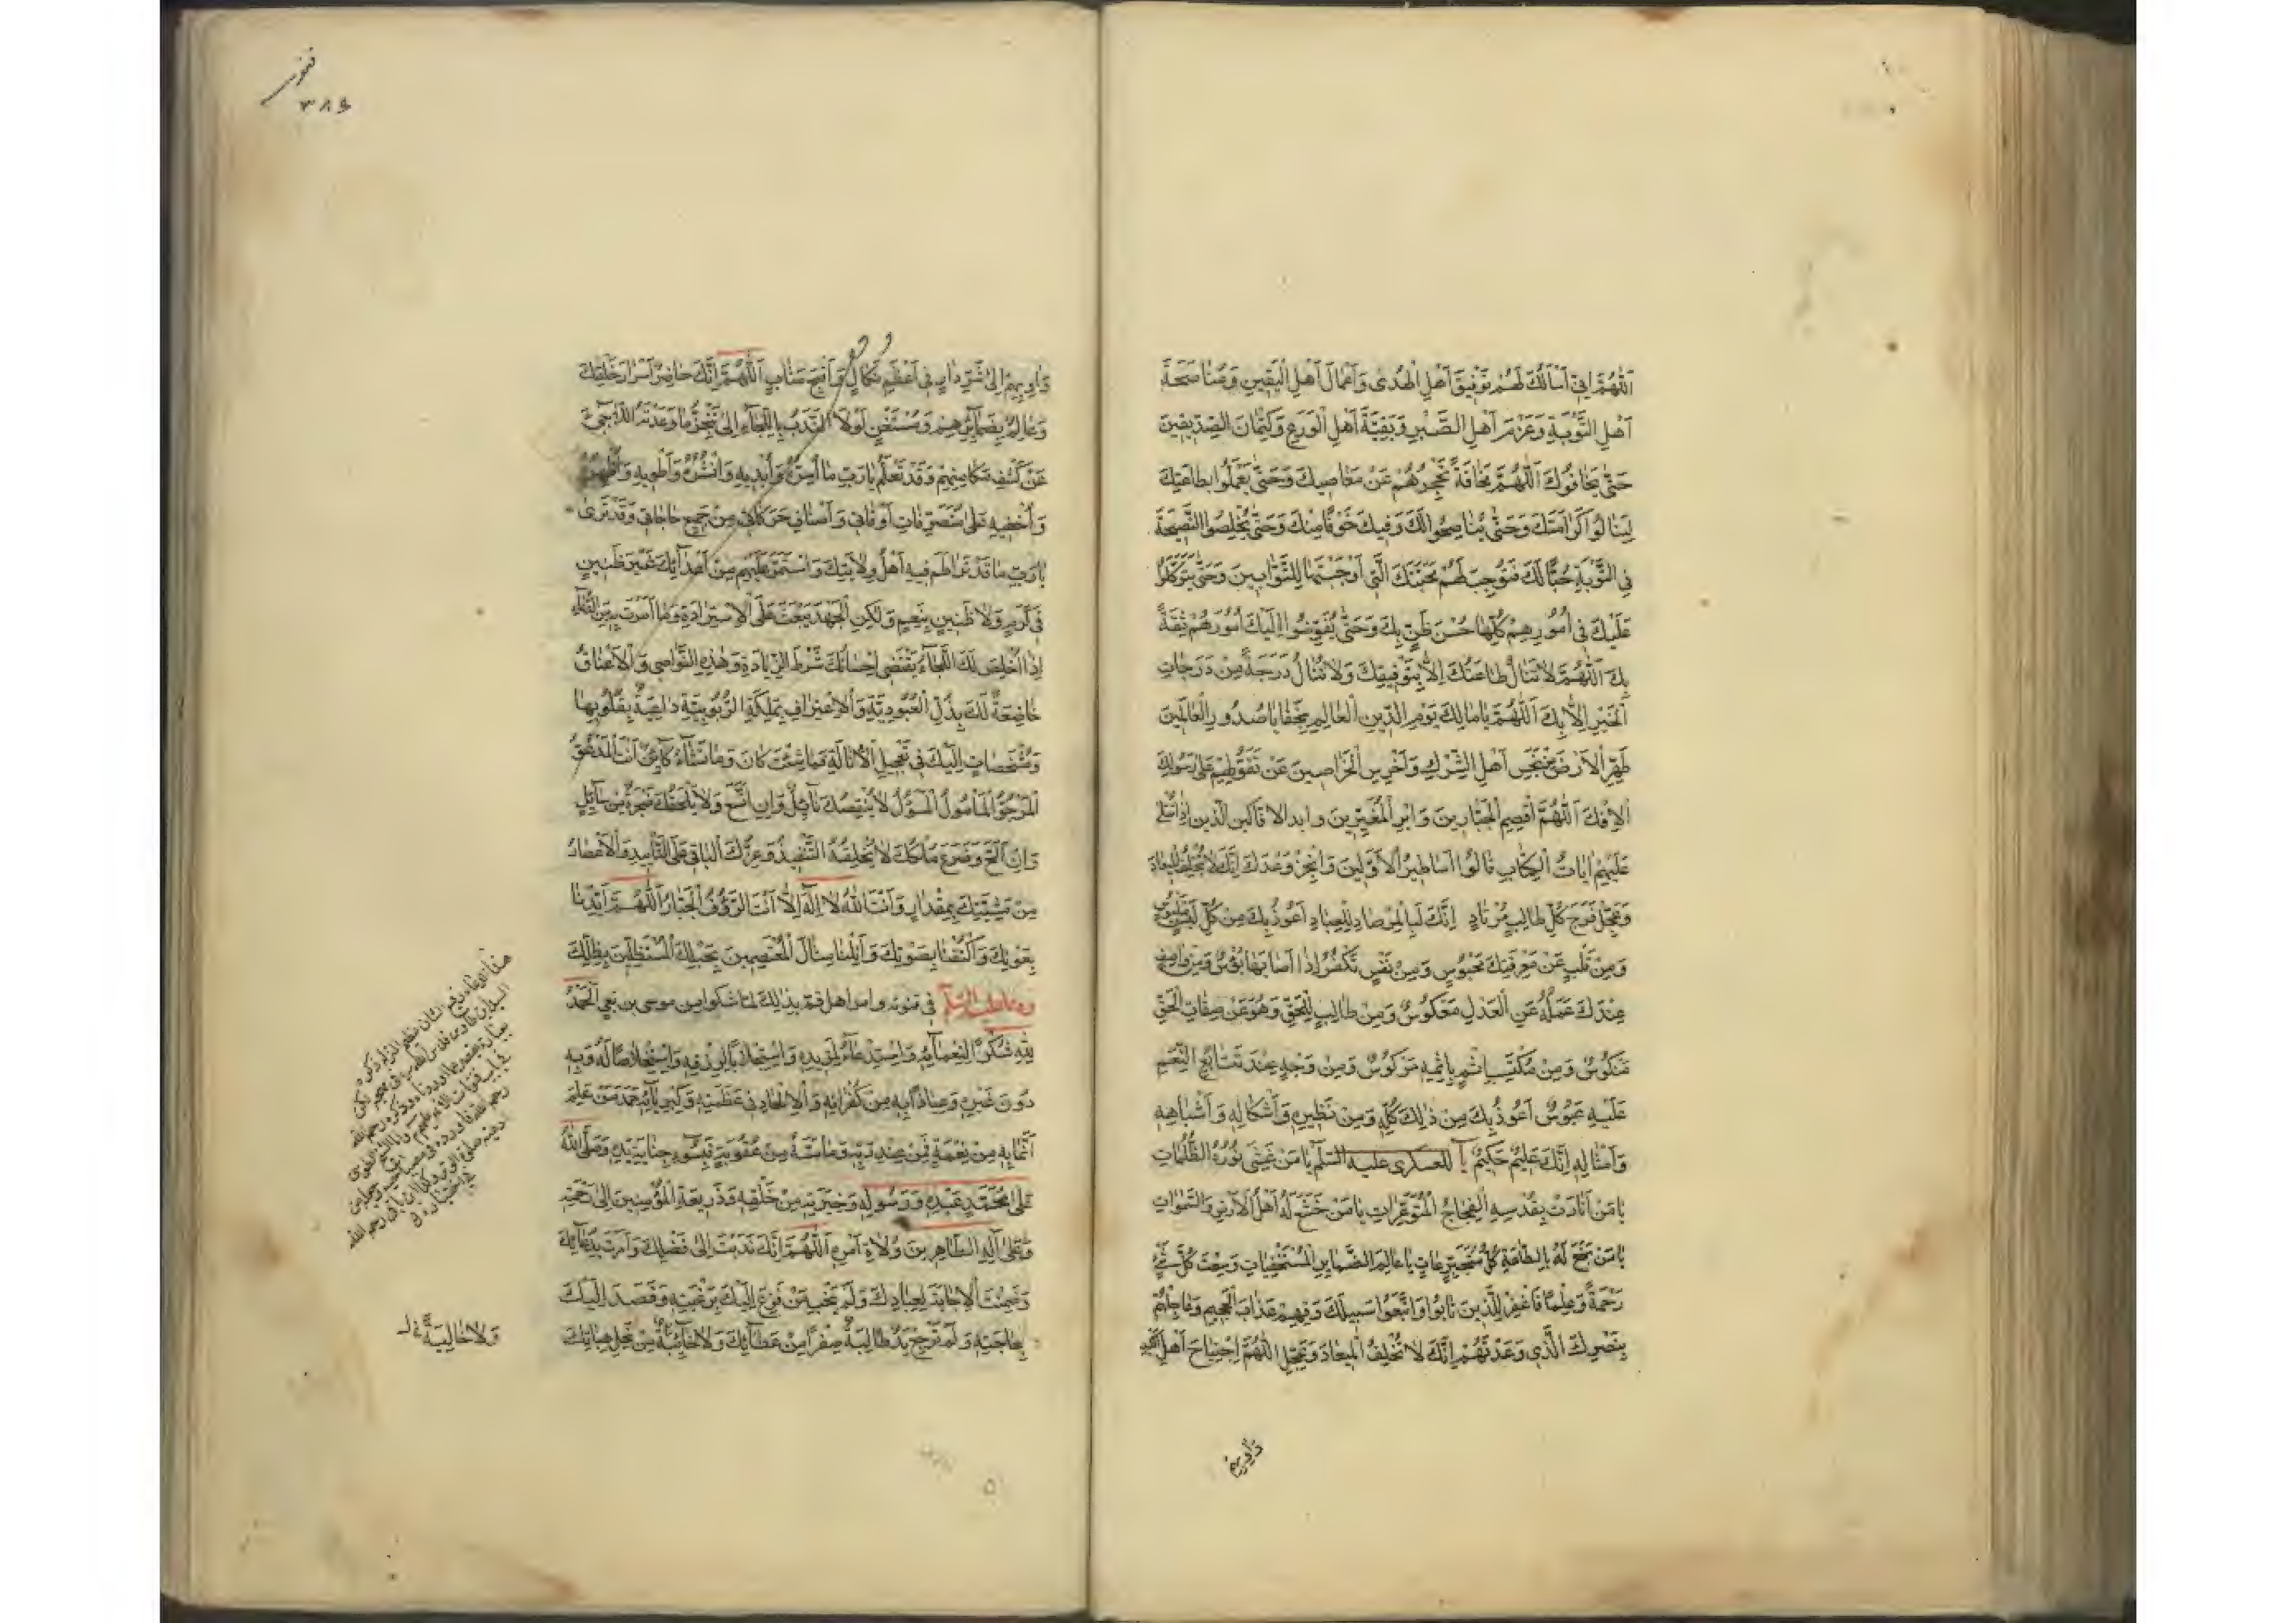 اَللّٰهُمَّ اِنّي اَسْاَلُكَ لَهُمْ تَوْفيقَ اَهْلِ الْهُدىٰ وَاَعْمالَ اَهْلِ الْيَقينِ وَمُناصَحَةَ
اَهْلِ التَّوْبَةِ وَعَزْمَ اَهْلِ الصَّبْرِ وَتَقِيَّةَ اَهْلِ الْوَرَعِ وَكِتْمانَ الصِّدّيقينَ
حَتّىٰ يَخافُوكَ اَللّٰهُمَّ مَخافَةً تَحْجُزُهُمْ عَنْ مَعاصيكَ وَحَتّىٰ يَعْمَلُوا بِطاعَتِكَ
لِيَنالُوا كَرامَتَكَ وَحَتّىٰ يُناصِحُوا لَكَ وَفيكَ خَوْفًا مِنْكَ وَحَتّىٰ يُخْلِصُوا النَّصيحَةَ
فِي التَّوْبَةِ حُبًّا لَكَ فَتُوجِبَ لَهُمْ مَحَبَّتَكَ الَّتي اَوْجَبْتَها لِلتَّوّابينَ وَحَتّىٰ يَتَوَكَّلُوا
عَلَيْكَ في اُمُورِهِمْ كُلِّها حُسْنَ ظَنٍّ بِكَ وَحَتّىٰ يُفَوِّضُوا اِلَيْكَ اُمُورَهُمْ ثِقَةً
بِكَ اَللّٰهُمَّ لا تُنالُ طاعَتُكَ اِلاّ بِتَوْفيقِكَ وَلا تُنالُ دَرَجَةٌ مِنْ دَرَجاتِ
الْخَيْرِ اِلاّ بِكَ اَللّٰهُمَّ يا مالِكَ يَوْمِ الدّينِ الْعالِمَ بِخَفايا صُدُورِ الْعالَمينَ
طَهِّرِ الْاَرْضَ مِنْ نَجَسِ اَهْلِ الشِّرْكِ وَاَخْرِسِ الْخَرّاصينَ عَنْ تَقَوُّلِهِمْ عَلىٰ رَسُولِكَ
الْاِفْكَ اَللّٰهُمَّ اقْصِمِ الْجَبّارينَ وَاَبِرِ الْمُفْتَرينَ وابد الافاكين الَّذينَ اِذا تُتْلىٰ
عَلَيْهِمْ اٰياتُ الْكِتابِ قالُوا اَساطيرُ الْاَوَّلينَ وَاَنْجِزْ وَعْدَكَ اِنَّكَ لا تُخْلِفُ الْميعادَ
وَعَجِّلْ فَرَجَ كُلِّ طالِبٍ مُرْتادٍ اِنَّكَ لَبِالْمِرْصادِ لِلْعِبادِ اَعُوذُ بِكَ مِنْ كُلِّ لَبْسٍ مَلْبُوسٍ
وَمِنْ قَلْبٍ عَنْ مَعْرِفَتِكَ مَحْبُوسٍ وَمِنْ نَفْسٍ تَكْفُرُ اِذا اَصابَها بُؤْسٌ وَمِنْ واصِفِ
عِنْدَكَ عَمَلُهُ عَنِ الْعَدْلِ مَعْكُوسٌ وَمِنْ طالِبٍ لِلْحَقِّ وَهُوَ عَنْ صِفاتِ الْحَقِّ
مَنْكُوسٌ وَمِنْ مُكْتَسِبِ اِثْمٍ بِاِثْمِهِ مَرْكُوسٌ وَمِنْ وَجْهٍ عِنْدَ تَتابُعِ النِّعَمِ
عَلَيْهِ عَبُوسٌ اَعُوذُ بِكَ مِنْ ذٰلِكَ كُلِّهِ وَمِنْ نَظيرِهِ وَاَشْكالِهِ وَاَشْباهِهِ
وَاَمْثالِهِ اِنَّكَ عَليمٌ حَكيمٌ للعسكرى عليه السَّلٰم يا مَنْ غَشِيَ نُورُهُ الظُّلُماتِ
يا مَنْ اَنارَتْ بِقُدْسِهِ الْفِجاجُ الْمُتَوَعِّراتِ يا مَنْ خَشَعَ لَهُ اَهْلُ الْاَرْضِ وَالسَّمٰواتِ
يا مَنْ بَخَعَ لَهُ بِالطّاعَةِ كُلُّ مُتَجَبِّرٍ عاتٍ يا عالِمَ الضَّمايِرِ الْمُسْتَخْفِياتِ وَسِعْتَ كُلَّ شَيْءٍ
رَحْمَةً وَعِلْمًا فَاغْفِرْ لِلَّذينَ تابُوا وَاتَّبَعُوا سَبيلَكَ وَقِهِمْ عَذابَ الْجَحيمِ وَعاجِلْهُمْ
بِنَصْرِكَ الَّذي وَعَدْتَهُمْ اِنَّكَ لا تُخْلِفُ الْميعادَ وَعَجِّلِ اللّٰهُمَّ اجْتِياحَ اَهْلِ الْكَيْدِ
وَاٰوِبْهِمْ
٣٨٤
وَاٰوِبْهِمْ اِلىٰ شَرِّ دارٍ في اَعْظَمِ نَكالٍ وَاَقْبَحِ مَتابٍ اَللّٰهُمَّ اِنَّكَ حاضِرُ اَسْرارِ خَلْقِكَ
وَعالِمٌ بِضَمآئِرِهِمْ وَمُسْتَغْنٍ لَوْلاَ النَّدْبُ بِاللَّجَاءِ اِلىٰ تَنَجُّزِ ما وَعَدْتَهُ اللّاجيَ
عَنْ كَشْفِ مَكامِنِهِمْ وَقَدْ تَعْلَمُ يا رَبِّ ما اُسِرُّهُ وَاُبْديهِ وَاَنْشُرُهُ وَاَطْويهِ وَاُظْهِرُهُ
وَاُخْفيهِ عَلىٰ مُتَصَرِّفاتِ اَوْقاتي وَاَصْنافِ حَرَكاتي مِنْ جَميعِ حاجاتي وَقَدْ تَرىٰ
يا رَبِّ ما قَدْ تَراطَمَ فيهِ اَهْلُ وِلايَتِكَ وَاسْتَمَرَّ عَلَيْهِمْ مِنْ اَعْدآئِكَ غَيْرَ ظَنينٍ
في كَرَمٍ وَلا ضَنينٍ بِنِعَمٍ وَلٰكِنِ الْجَهْدُ يَبْعَثُ عَلَى الْاِسْتِزادَةِ وَما اَمَرْتَ بِهِ مِنَ الدُّعآءِ
اِذا اُخْلِصَ لَكَ اللَّجَاءُ يَقْتَضي اِحْسانُكَ شَرْطَ الزِّيادَةِ وَهٰذِهِ النَّواصي وَالْاَعْناقُ
خاضِعَةٌ لَكَ بِذُلِّ الْعُبُودِيَّةِ وَالْاِعْتِرافِ بِمَلَكَةِ الرُّبُوبِيَّةِ داعِيَةٌ بِقُلُوبِها
وَمُشْخَصاتٍ اِلَيْكَ في تَعْجيلِ الْاِنالَةِ فَما شِئْتَ كانَ وَما تَشآءُ كآئِنٌ اَنْتَ الْمَدْعُوُّ
الْمَرْجُوُّ الْمَأْمُولُ الْمَسْؤُلُ لا يَنْقُصُكَ نآئِلٌ وَاِنِ اتَّسَعَ وَلا يُلْحِفُكَ سآئِلٌ
وَاِنْ اَلَحَّ وَضَرَعَ مُلْكُكَ لا يُخْلِقُهُ التَّنْفيذُ وَعِزُّكَ الْباقي عَلَى التَّأْبيدِ وَالْاَعْصارُ
مِنْ مَشِيَّتِكَ بِمِقْدارٍ وَاَنْتَ اللّٰهُ لا اِلٰهَ اِلاّ اَنْتَ الرَّؤُفُ الْجَبّارُ اَللّٰهُمَّ اَيِّدْنا
بِعَوْنِكَ وَاكْنُفْنا بِصَوْنِكَ وَاَنِلْنا مَنالَ الْمُعْتَصِمينَ بِحَبْلِكَ الْمُسْتَظِلّينَ بِظِلِّكَ
ودعا عليه السّلام في قنوته وامر اهل قم بذلك لمّا شكوا من موسى بن بغي اَلْحَمْدُ
لِلّٰهِ شُكْرًا لِنَعْمآئِهِ وَاسْتِدْعآءً لِمَزيدِهِ وَاسْتِخْلاصًا لَهُ وَبِهِ
دُونَ غَيْرِهِ وَعِياذًا بِهِ مِنْ كُفْرانِهِ وَالْاِلْحادِ في عَظَمَتِهِ وَكِبْرِيآئِهِ حَمْدَ مَنْ عَلِمَ
اَنَّ ما بِهِ مِنْ نِعْمَةٍ فَمِنْ عِنْدِ رَبِّهِ وَما مَسَّهُ مِنْ عُقُوبَةٍ فَبِسُوءِ جِنايَةِ يَدِهِ وَصَلَّى اللّٰهُ
عَلىٰ مُحَمَّدٍ عَبْدِهِ وَرَسُولِهِ وَخِيَرَتِهِ مِنْ خَلْقِهِ وَذَريعَةِ الْمُؤْمِنينَ اِلىٰ رَحْمَتِهِ
وَعَلىٰ اٰلِهِ الطّاهِرينَ وُلاةِ اَمْرِهِ اَللّٰهُمَّ اِنَّكَ نَدَبْتَ اِلىٰ فَضْلِكَ وَاَمَرْتَ بِدُعآئِكَ
وَضَمِنْتَ الْاِجابَةَ لِعِبادِكَ وَلَمْ تُخَيِّبْ مَنْ فَزِعَ اِلَيْكَ بِرَغْبَتِهِ وَقَصَدَ اِلَيْكَ
بِحاجَتِهِ وَلَمْ تَرْجِعْ يَدٌ طالِبَةٌ صِفْرًا مِنْ عَطآئِكَ وَلا خآئِبَةً مِنْ نِحَلِ هِباتِكَ
وَلا خالِيَةً